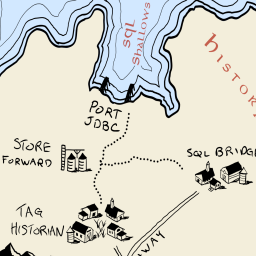 SQL
SHALLOWS
HISTOR
PORT
JDBC
STORE
FORWARD
SQL BRIDG
TAG
HISTORIAN
WAY